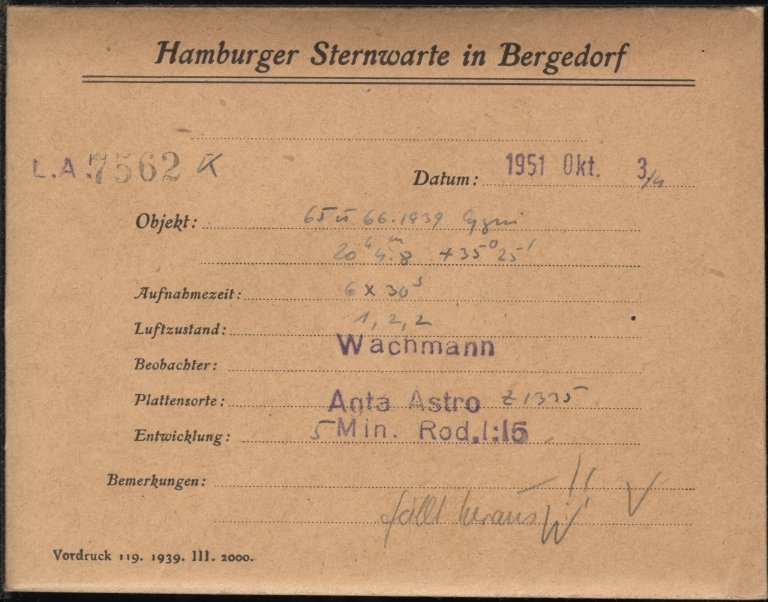 Hamburger Sternwarte in Bergedorf
L.A. 7562 K
Datum: 1951 Okt. 3/4
Objekt: 65 u 66.1939 Cygni
20h 4m.8 +35° 25'
Aufnahmezeit: 6 x 30s
Luftzustand: 1, 2, 2
Beobachter: Wachmann
Plattensorte: Agfa Astro Z1335
Entwicklung: 5 Min. Rod. 1:15
Bemerkungen: — !!
fällt heraus
Vordruck 119. 1939. III. 2000.